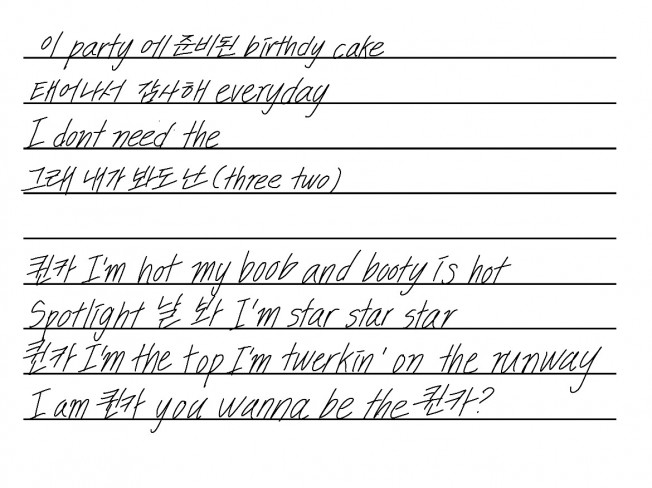 이 party 에 준비된 birthdy cake
태어나서 감사해 everyday
I dont need the
그래 내가 봐도 난 (three two)
퀸카 I'm hot my boob and booty is hot
Spotlight 날 봐 I'm star star star
퀸카 I'm the top I'm twerkin' on the runway
I am 퀸카 you wanna be the 퀸카?